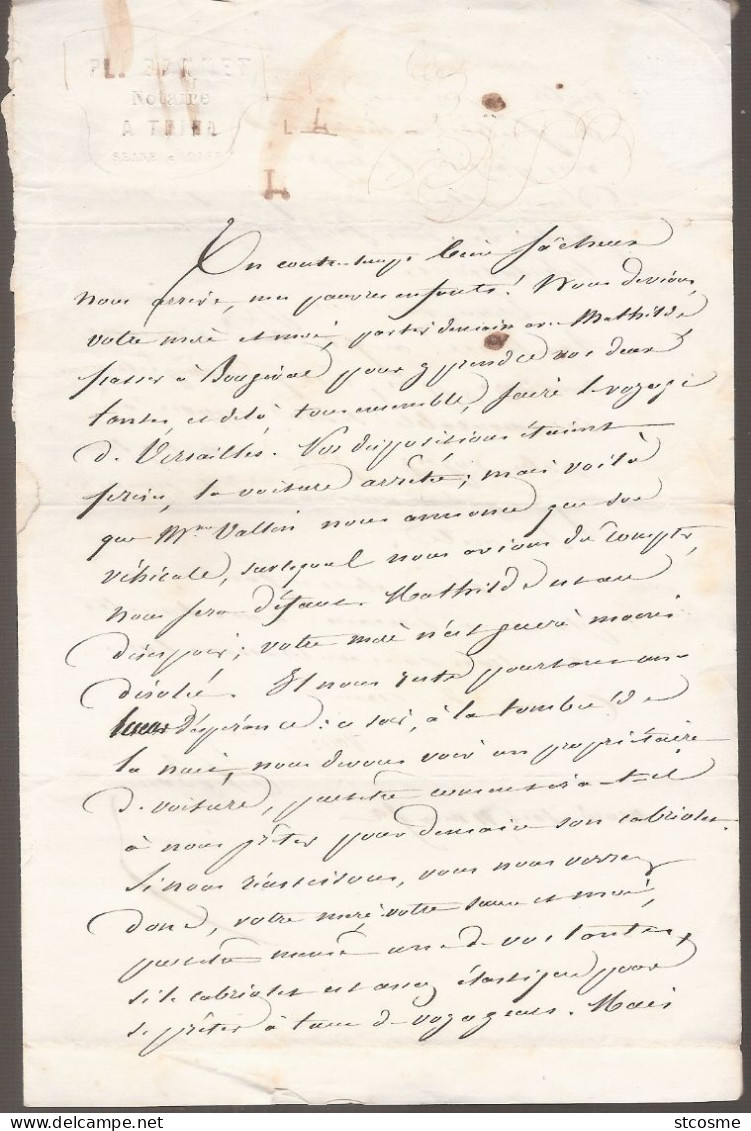 Notaire
L
L.
Un contre-temps bien fâcheux
nous arrive, mes pauvres enfants! Nous devions,
votre mère et moi, partir demain avec Mathilde,
passer à Bougival pour y prendre vos deux
tantes, et de là, tous ensemble, faire le voyage
de Versailles. Nos dispositions étaient
prises, la voiture arrêtée; mais voilà
que Mme Vallin nous annonce que son
véhicule, sur lequel nous avions dû compter,
nous fera défaut. Mathilde est au
désespoir; votre mère n'est guère moins
désolée. Il nous reste pourtant une
lueur d'espérance: ce soir, à la tombée de
la nuit, nous devons voir un propriétaire
de voiture, peut-être consentira-t-il
à nous prêter pour demain son cabriolet.
Si nous réussissons, vous nous verrez
donc, votre mère, votre sœur et moi,
peut-être même une de vos tantes,
si le cabriolet est assez élastique pour
se prêter à tant de voyageurs. Mais
stcosme - delcampe.net